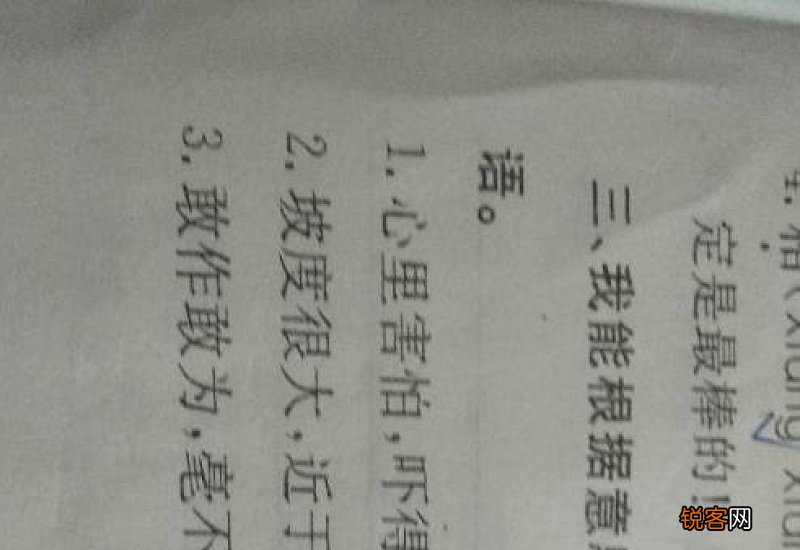 4. 相(xiāng xiàn
定是最棒的!
三、我能根据意
语。
1. 心里害怕,吓得
2. 坡度很大,近于
3. 敢作敢为,毫不
锐客网